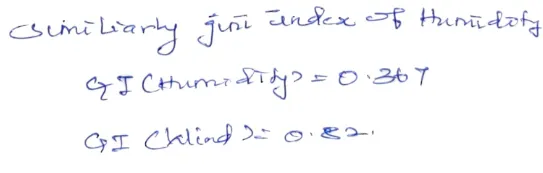 Similiarly jini index of Humidity
GI (Humidity) = 0.367
GI (Wind) = 0.82.